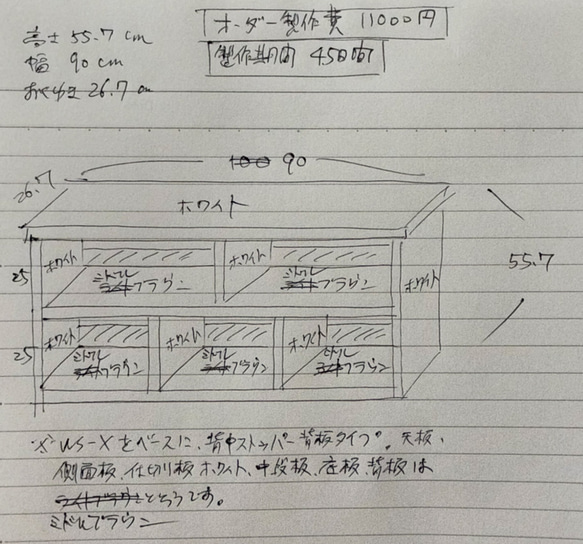 オーダー製作費 11000円
製作期間 45日間
高さ 55.7 cm
幅 90 cm
おくゆき 26.7 cm
100 90
26.7
ホワイト
55.7
25
ホワイト
ミドル
ライトブラウン
ホワイト
ミドル
ライトブラウン
ホワイト
25
ホワイト
ミドル
ライトブラウン
ホワイト
ミドル
ライトブラウン
ホワイト
ミドル
ライトブラウン
WS-Xをベースに、背中ストッパー背板タイプ。天板、
側面板、仕切り板ホワイト、中段板、底板、背板は
ライトブラウンとどうです。
ミドルブラウン